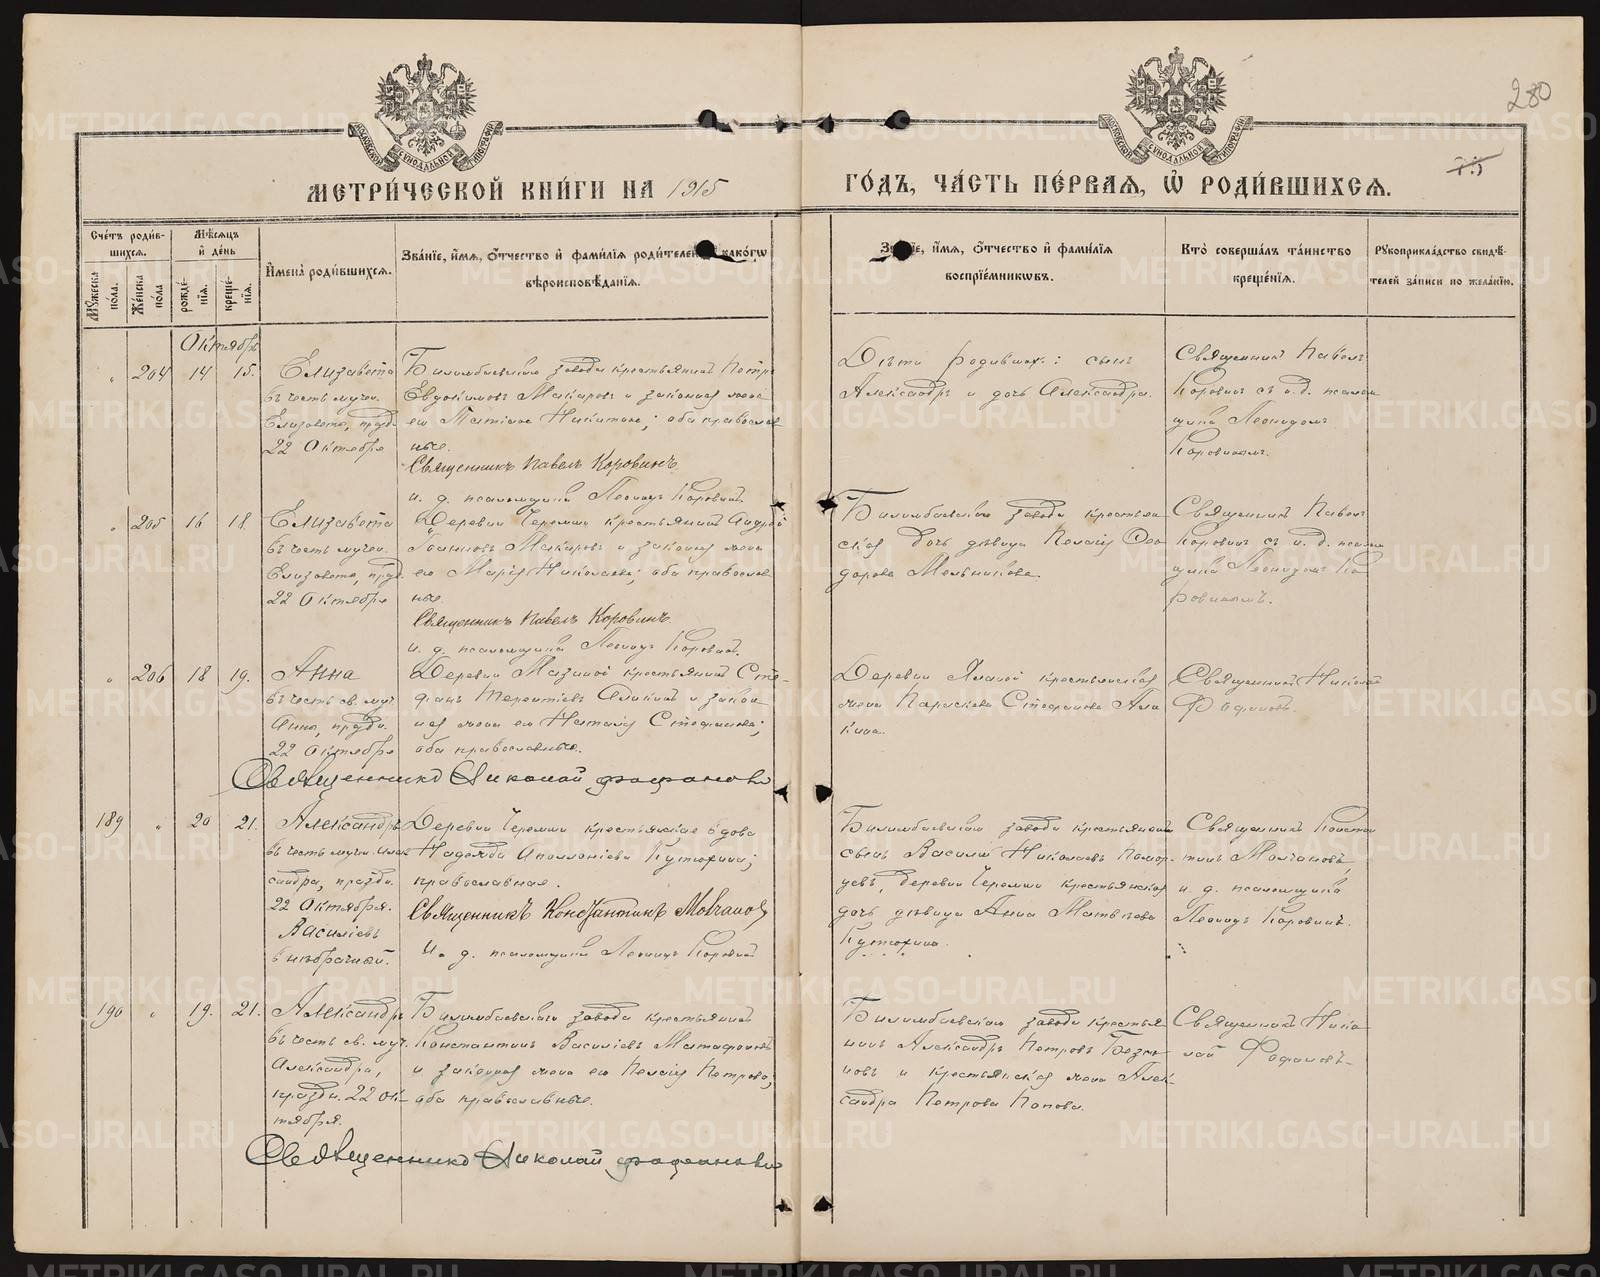 280
75
МЕТРИ́ЧЕСКОЙ КНИ́ГИ НА 1915
ГО́ДЪ, ЧА́СТЬ ПЕ́РВАЯ, Ѡ҆ РОДИ́ВШИХСЯ.
Сче́тъ роди́вшихся.
Му́жеска по́ла.
Же́нска по́ла
Мѣ́сяцъ и҆ де́нь
рожде́нїя.
креще́нїя.
И҆мена̀ роди́вшихся.
Зва́нїе, и҆́мя, ѻ҆́тчество и҆ фами́лїя роди́телей
како́гѡ
вѣроисповѣ́данїя.
и҆́мя, ѻ҆́тчество и҆ фами́лїя
воспрїе́мникѡвъ.
Кто̀ соверша́лъ та́инство
креще́нїя.
Рꙋкоприкла́дство свидѣ́-
телей за́писи по жела́нїю.
Октябрь
" 204 14 15.
Елизавета
въ честь мучен.
Елизаветы, празд.
22 Октября
Билимбаевскаго завода крестьянинъ Петръ
Евдокимовъ Макаровъ и законная жена
его Татіана Никитина; оба православ
ные.
Священникъ Павелъ Коровинъ.
и. д. псаломщика Леонидъ Коровинъ
Дѣти родивших: сынъ
Александръ и дочь Александра.
Священникъ Павелъ
Коровинъ съ и. д. псалом
щика Леонидомъ
Коровинымъ.
" 205 16 18.
Елизавета
въ честь мучен.
Елизаветы, празд.
22 Октября
Деревни Черемши крестьянинъ Андрей
Ивановъ Макаровъ и законная жена
его Марія Николаева; оба православ
ные.
Священникъ Павелъ Коровинъ.
и. д. псаломщика Леонидъ Коровинъ.
Билимбаевскаго завода крестьян
ская дочь дѣвица Пелагія Ѳео
дорова Мельникова.
Священникъ Павелъ
Коровинъ съ и. д. псалом
щика Леонидомъ Ко
ровинымъ.
" 206 18 19.
Анна
въ честь св. муч.
Анны, праздн.
22 Октября
Деревни Мазиной крестьянинъ Сте-
фанъ Терентіевъ Аликинъ и закон
ная жена его Наталія Стефанова;
оба православные.
Священникъ Николай Фофановъ
Деревни крестьянская
жена Параскева Стефанова Али
кина.
Священникъ Николай
Фофановъ.
189 " 20 21.
Александръ
въ честь мучен. Алек
сандра, праздн.
22 Октября.
Василіевъ
внѣбрачный.
Деревни Черемши крестьянская вдова
Надежда Аполлоніева Кутюхина;
православная.
Священникъ Константинъ Молчановъ
И. д. псаломщика Леонидъ Коровинъ
Билимбаевскаго завода крестьянскій
сынъ Василій Николаевъ Помор-
цевъ, деревни Черемши крестьянская
дочь дѣвица Анна Матвѣева
Кутюхина.
Священникъ Констан
тинъ Молчановъ,
и. д. псаломщика
Леонидъ Коровинъ.
190 " 19. 21.
Александръ
въ честь св. муч.
Александра,
праздн. 22 Ок-
тября.
Билимбаевскаго завода крестьянинъ
Константинъ Василіевъ Матафоновъ
и законная жена его Пелагія Петрова;
оба православные.
Священникъ Николай Фофановъ
Билимбаевскаго завода крестья
нинъ Александръ Петровъ
и крестьянская жена Алек-
сандра Петрова Попова.
Священникъ Нико
лай Фофановъ.
METRIKI.GASO-URAL.RU